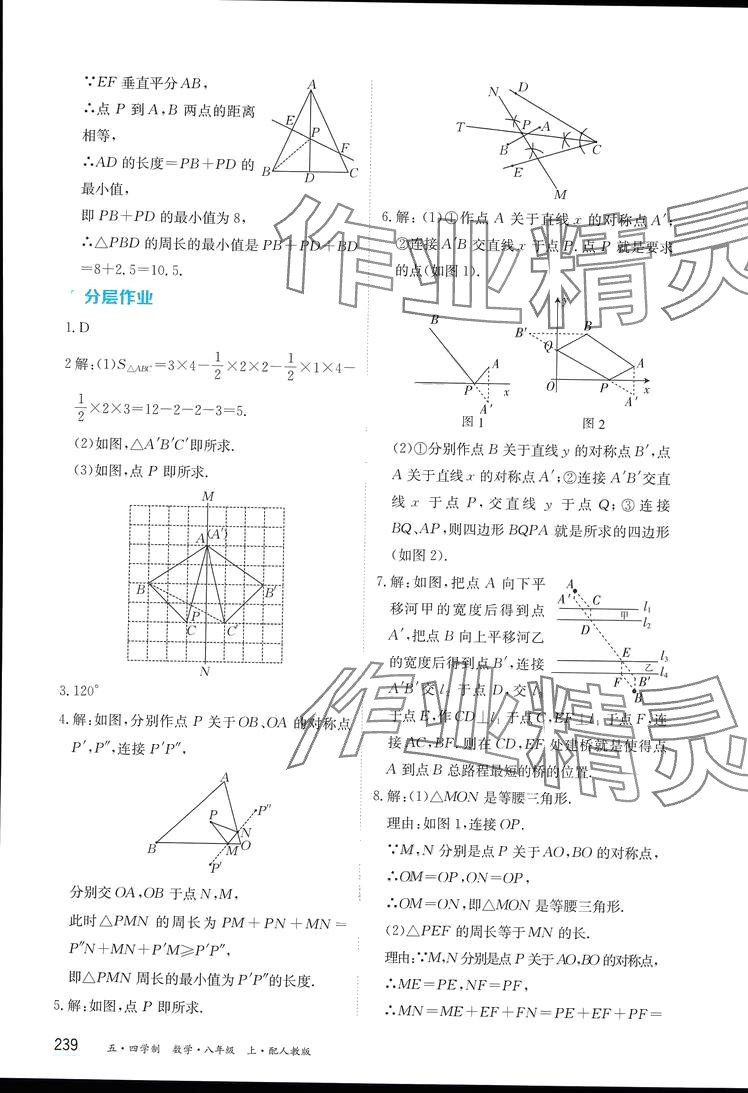 ∵EF 垂直平分 AB,
∴点 P 到 A,B 两点的距离
相等,
∴AD 的长度=PB+PD 的
最小值,
即 PB+PD 的最小值为 8,
∴△PBD 的周长的最小值是 PB+PD+BD
=8+2.5=10.5.
A
E
P
F
B
D
C
分层作业
1.D
2解:(1)S△ABC=3×4-1/2×2×2-1/2×1×4-
1/2×2×3=12-2-2-3=5.
(2)如图,△A′B′C′即所求.
(3)如图,点 P 即所求.
M
A
(A′)
B
B′
P
C
C′
N
3.120°
4.解:如图,分别作点 P 关于OB、OA 的对称点
P′,P″,连接 P′P″,
A
P
P″
N
B
M
O
P′
分别交 OA,OB 于点 N,M,
此时△PMN 的周长为 PM+PN+MN=
P″N+MN+P′M≥P′P″,
即△PMN 周长的最小值为 P′P″的长度.
5.解:如图,点 P 即所求.
D
N
T
P
A
B
C
E
M
6.解:(1)①作点 A 关于直线 x 的对称点 A′;
②连接 A′B 交直线 x 于点 P.点 P 就是要求
的点(如图 1).
B
A
P
x
A′
图 1
y
B′
B
Q
A
O
P
x
A′
图 2
(2)①分别作点 B 关于直线 y 的对称点 B′,点
A 关于直线 x 的对称点 A′;②连接 A′B′交直
线 x 于点 P,交直线 y 于点 Q;③连接
BQ、AP,则四边形 BQPA 就是所求的四边形
(如图 2).
7.解:如图,把点 A 向下平
移河甲的宽度后得到点
A′,把点 B 向上平移河乙
的宽度后得到点 B′,连接
A′B′交 l₂ 于点 D,交 l₃
于点 E,作 CD⊥l₁ 于点 C,EF⊥l₄ 于点 F,连
接 AC,BF.则在 CD,EF 处建桥就是使得点
A 到点 B 总路程最短的桥的位置.
A
A′
C
甲
l₁
l₂
D
E
l₃
乙
l₄
F
B′
B
8.解:(1)△MON 是等腰三角形.
理由:如图 1,连接 OP.
∵M,N 分别是点 P 关于 AO,BO 的对称点,
∴OM=OP,ON=OP,
∴OM=ON,即△MON 是等腰三角形.
(2)△PEF 的周长等于 MN 的长.
理由:∵M,N分别是点 P 关于AO,BO的对称点,
∴ME=PE,NF=PF,
∴MN=ME+EF+FN=PE+EF+PF=
239 五·四学制 数学·八年级 上·配人教版
作业精灵
作业精灵